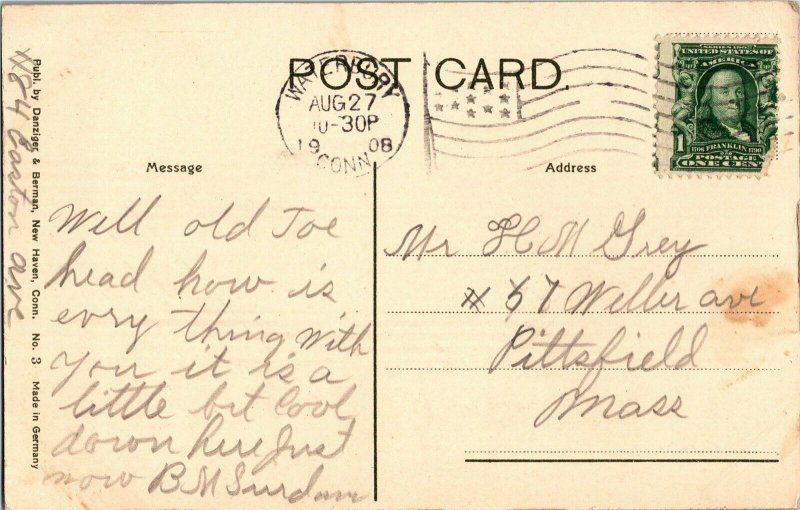 POST CARD.
WATERBURY
AUG 27
10-30P
1908
CONN.
SERIES 1902
UNITED STATES OF
AMERICA
1706 FRANKLIN 1790
POSTAGE
1 ONE CENT
Message
Address
Well old Joe
head how is
evry thing with
you it is a
little bit cool
down here Just
now B M Surdam
Mr H M Grey
# 57 Weller ave
Pittsfield
Mass
#84 Easton ave
Publ. by Danziger & Berman, New Haven, Conn. No. 3 Made in Germany